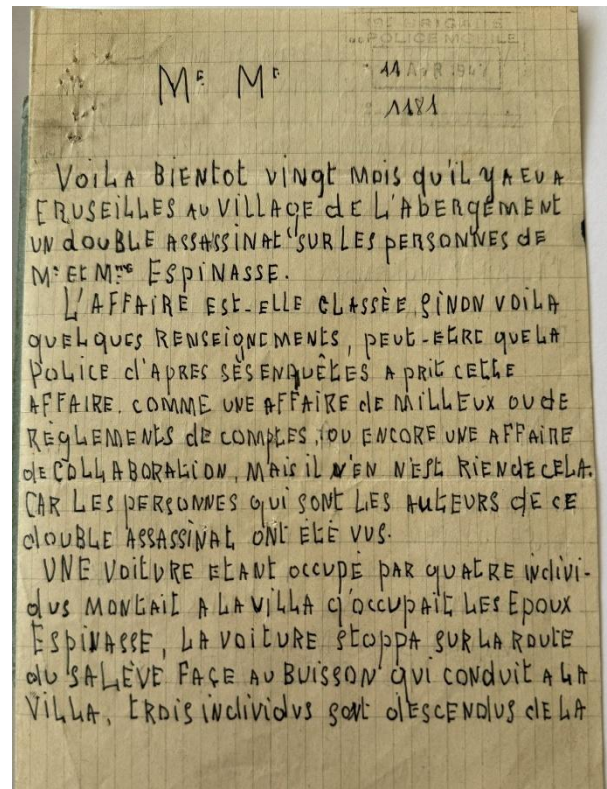 BRIGADE
DE POLICE MOBILE
11 AVR 1947
1181
Mr Mr
VOILA BIENTOT VINGT MOIS QU'IL Y A EU A
CRUSEILLES AU VILLAGE DE L'ABERGEMENT
UN DOUBLE ASSASSINAT "SUR LES PERSONNES DE
Mr ET Mme ESPINASSE.
L'AFFAIRE EST-ELLE CLASSÈE, SINON VOILA
QUELQUES RENSEIGNEMENTS, PEUT-ETRE QUE LA
POLICE D'APRES SES ENQUÊTES A PRIT CETTE
AFFAIRE. COMME UNE AFFAIRE DE MILLEUX OU DE
RÈGLEMENTS DE COMPTES, OU ENCORE UNE AFFAIRE
DE COLLABORATION, MAIS IL N'EN N'EST RIEN DE CELA.
CAR LES PERSONNES QUI SONT LES AUTEURS DE CE
DOUBLE ASSASSINAT ONT ÉTÉ VUS.
UNE VOITURE ETANT OCCUPÉ PAR QUATRE INDIVI-
DUS MONTAIT A LA VILLA Q'OCCUPAIT LES EPOUX
ESPINASSE, LA VOITURE STOPPA SUR LA ROUTE
DU SALÈVE FAÇE AU BUISSON QUI CONDUIT A LA
VILLA, TROIS INDIVIDUS SONT DESCENDUS DE LA